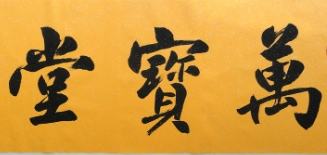 萬寶堂